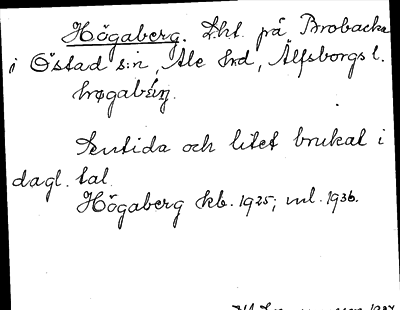 Högaberg. Lht. på Brobacka
i Östad s:n, Ale hrd, Älfsborgs l.
Sentida och litet brukat i
dagl. tal.
Högaberg kb. 1925; ml. 1936.